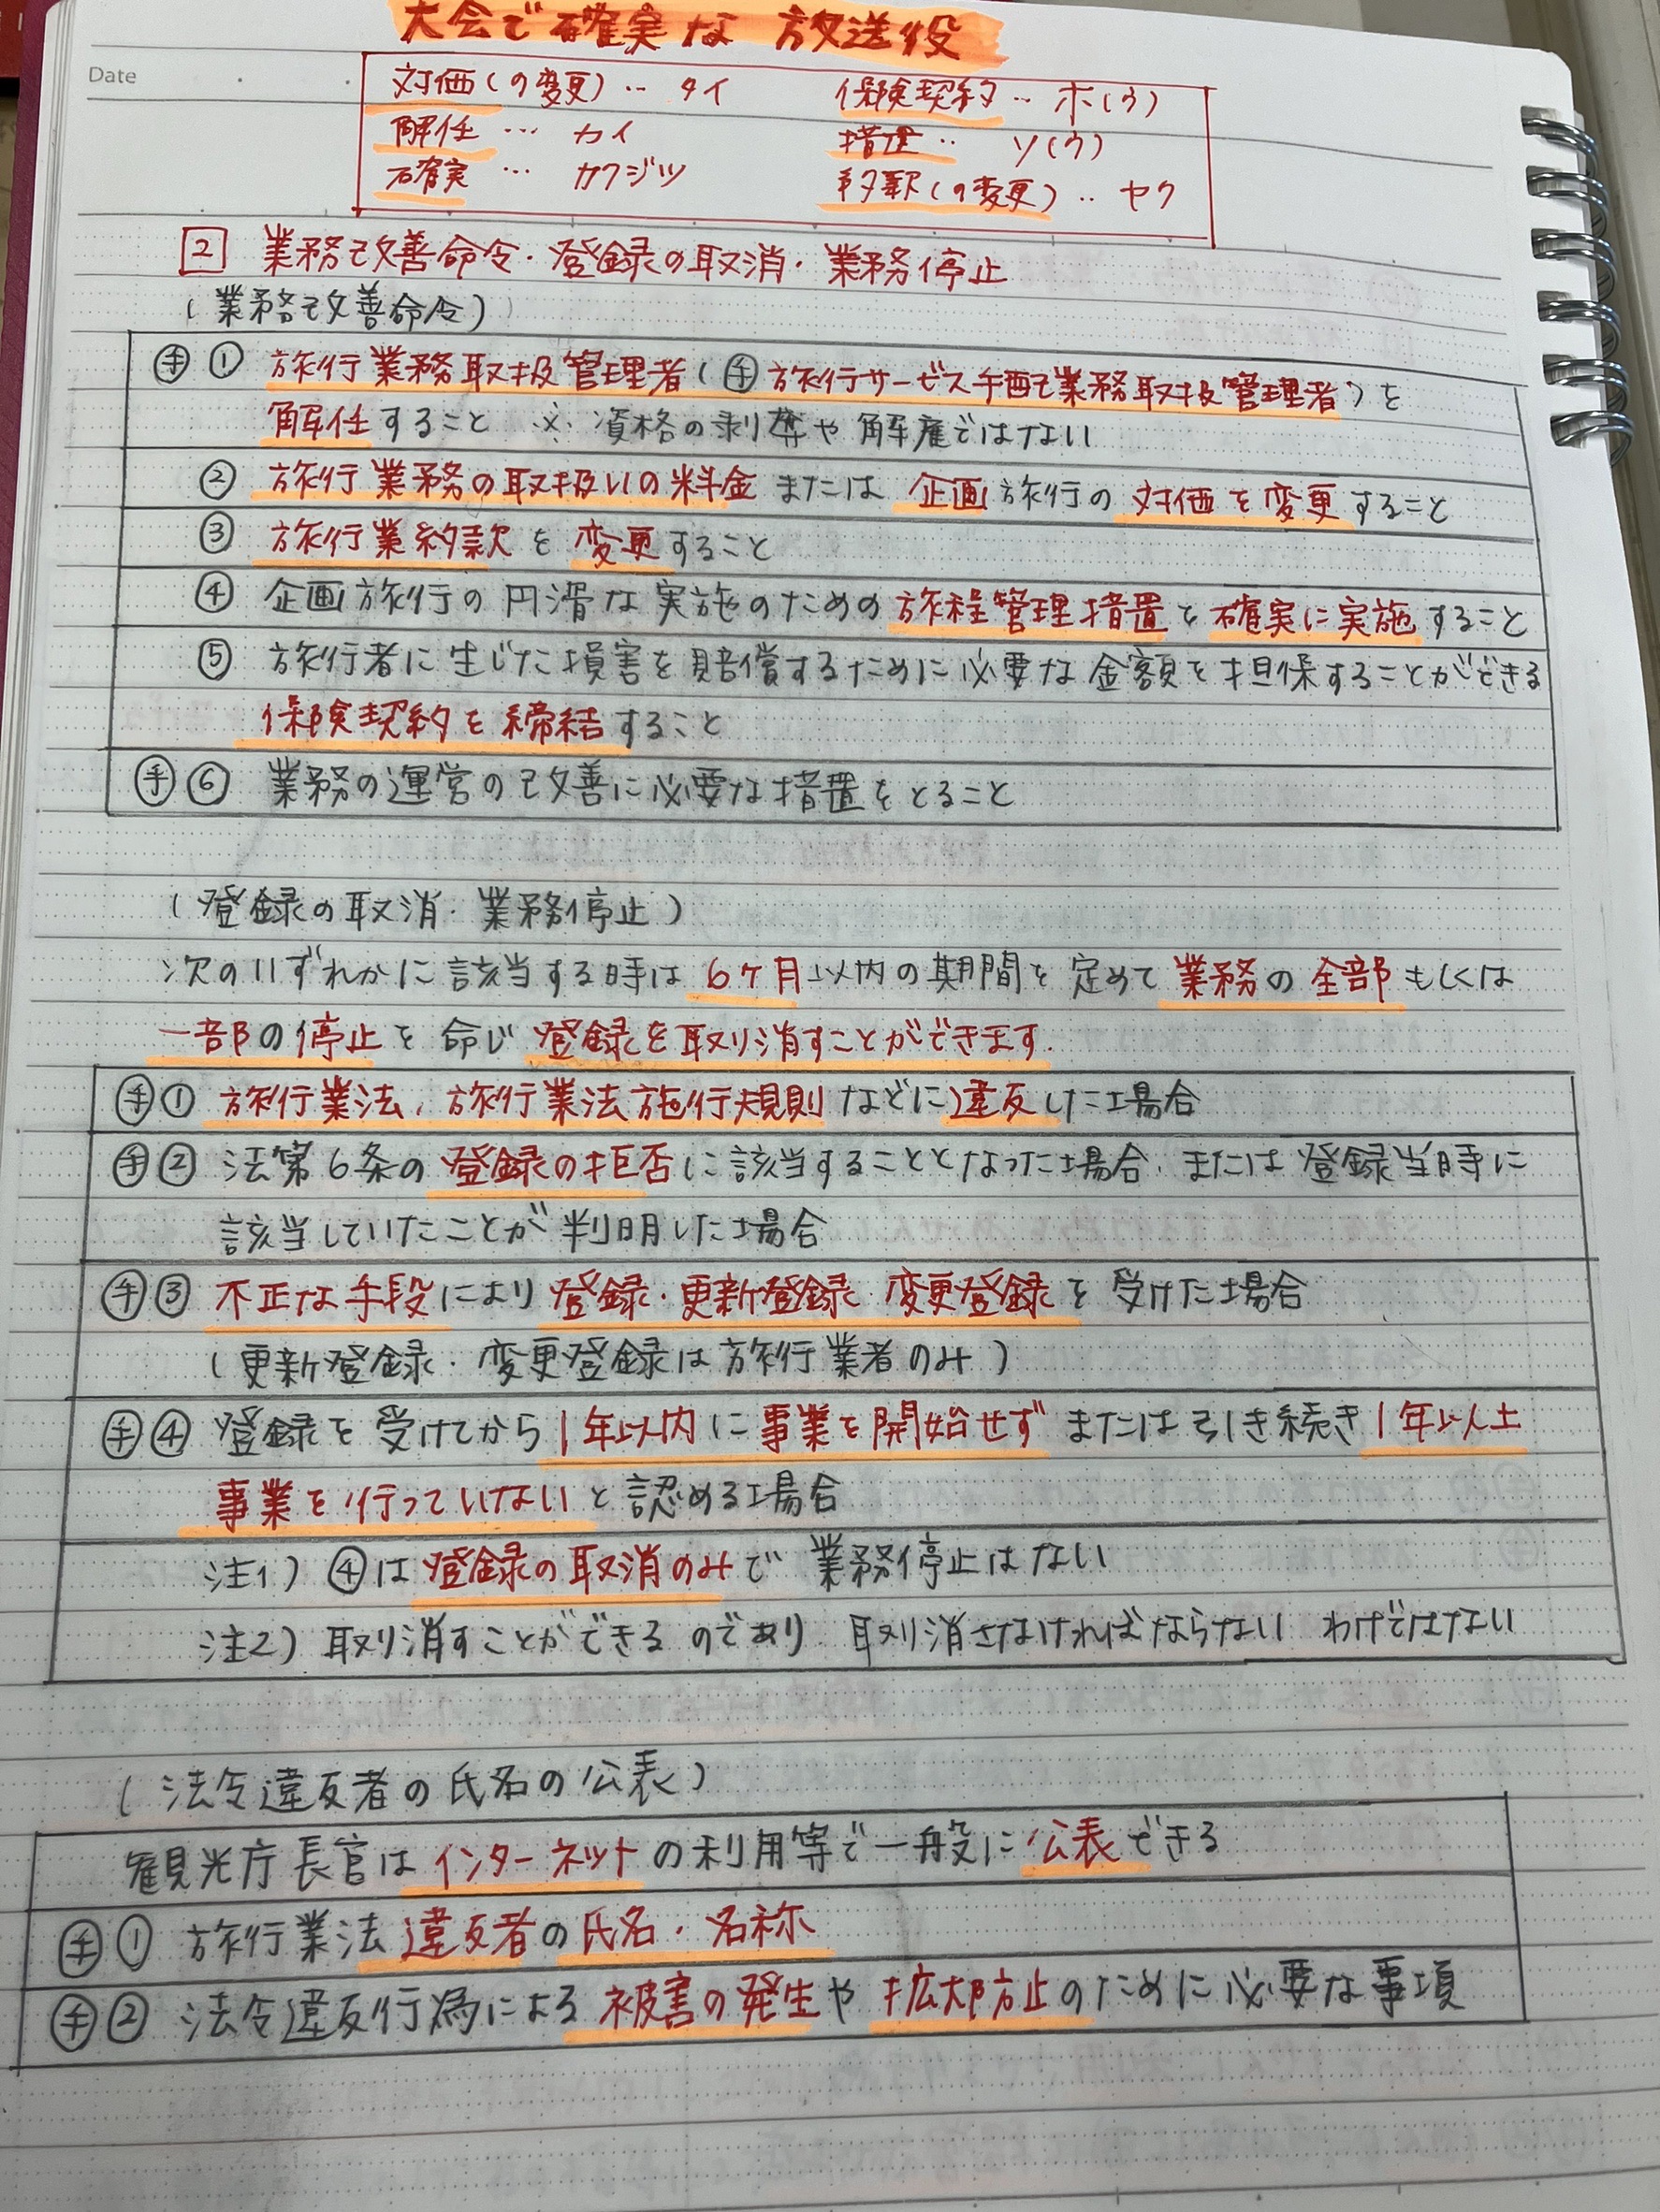 大会で確実な放送役
Date
対価(の変更)‥タイ 保険契約‥ホ(ウ)
解任…カイ 措置‥ソ(ウ)
確実…カクジツ 約款(の変更)‥ヤク
2 業務改善命令・登録の取消・業務停止
(業務改善命令)
手① 旅行業務取扱管理者(手旅行サービス手配業務取扱管理者)を
解任すること ※資格の剥奪や解雇ではない
② 旅行業務の取扱いの料金または企画旅行の対価を変更すること
③ 旅行業約款を変更すること
④ 企画旅行の円滑な実施のための旅程管理措置を確実に実施すること
⑤ 旅行者に生じた損害を賠償するために必要な金額を担保することができる
保険契約を締結すること
手⑥ 業務の運営の改善に必要な措置をとること
(登録の取消・業務停止)
次のいずれかに該当する時は6ヶ月以内の期間を定めて業務の全部もしくは
一部の停止を命じ登録を取り消すことができます.
手① 旅行業法、旅行業法施行規則などに違反した場合
手② 法第6条の登録の拒否に該当することとなった場合、または登録当時に
該当していたことが判明した場合
手③ 不正な手段により登録・更新登録・変更登録を受けた場合
(更新登録・変更登録は旅行業者のみ)
手④ 登録を受けてから1年以内に事業を開始せずまたは引き続き1年以上
事業を行っていないと認める場合
注1) ④は登録の取消のみで業務停止はない
注2) 取り消すことができるのであり 取り消さなければならない わけではない
(法令違反者の氏名の公表)
観光庁長官はインターネットの利用等で一般に公表できる
手① 旅行業法違反者の氏名・名称
手② 法令違反行為による被害の発生や拡大防止のために必要な事項